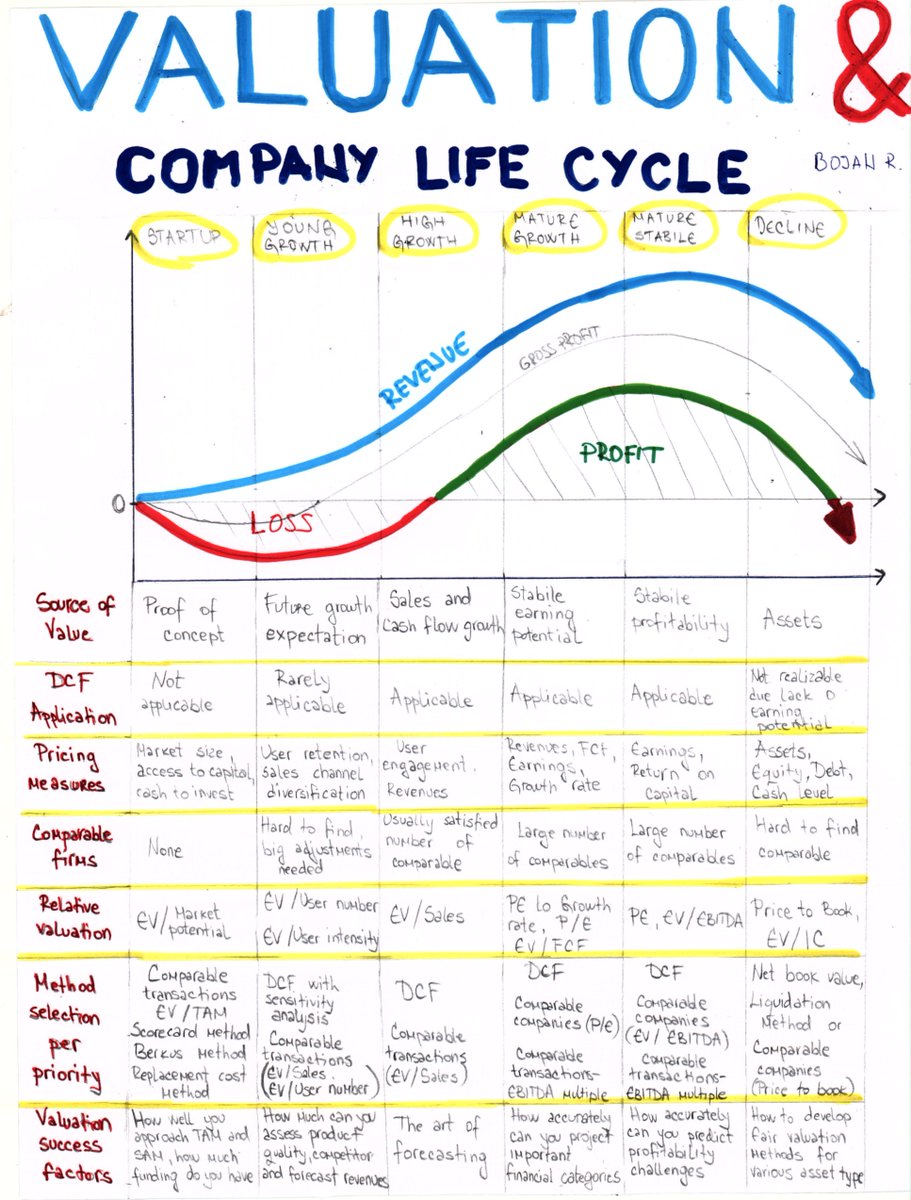 VALUATION &
COMPANY LIFE CYCLE
BOJAN R.
STARTUP
YOUNG
GROWTH
HIGH
GROWTH
MATURE
GROWTH
MATURE
STABILE
DECLINE
REVENUE
GROSS PROFIT
PROFIT
0
LOSS
Source of
Value
Proof of
concept
Future growth
expectation
Sales and
Cash flow growth
Stabile
earning
potential
Stabile
profitability
Assets
DCF
Application
Not
applicable
Rarely
applicable
Applicable
Applicable
Applicable
Not realizable
due lack o
Earning
potential
Pricing
Measures
Market size,
access to capital,
cash to invest
User retention,
sales channel
diversification
User
engagement.
Revenues
Revenues, FCF,
Earnings,
Growth rate
Earnings,
Return on
Capital
Assets,
Equity, Debt,
Cash level
Comparable
firms
None
Hard to find,
big adjustments
needed
Usually satisfied
number of
comparable
Large number
of comparables
Large number
of comparables
Hard to find
comparable
Relative
valuation
EV/Market
potential
EV/User number
EV/User intensity
EV/Sales
PE to Growth
rate, P/E
EV/FCF
PE, EV/EBITDA
Price to Book,
EV/IC
Method
selection
per
priority
Comparable
transactions
EV/TAM
Scorecard Method
Berkus Method
Replacement cost
Method
DCF with
sensitivity
analysis
Comparable
transactions
(EV/Sales.
EV/User number)
DCF
Comparable
transactions
(EV/Sales)
DCF
Comparable
companies (P/E)
Comparable
transactions-
EBITDA Multiple
DCF
Comparable
companies
(EV/EBITDA)
Comparable
transactions-
EBITDA Multiple
Net book value,
Liquidation
Method or
Comparable
companies
(Price to book)
Valuation
success
factors
How well you
approach TAM and
SAM, how much
funding do you have
How Much can you
assess product
quality, competitor
and forecast revenues
The art of
forecasting
How accurately
can you project
important
financial categories
How accurately
can you predict
profitability
challenges
How to develop
fair valuation
Methods for
various asset type